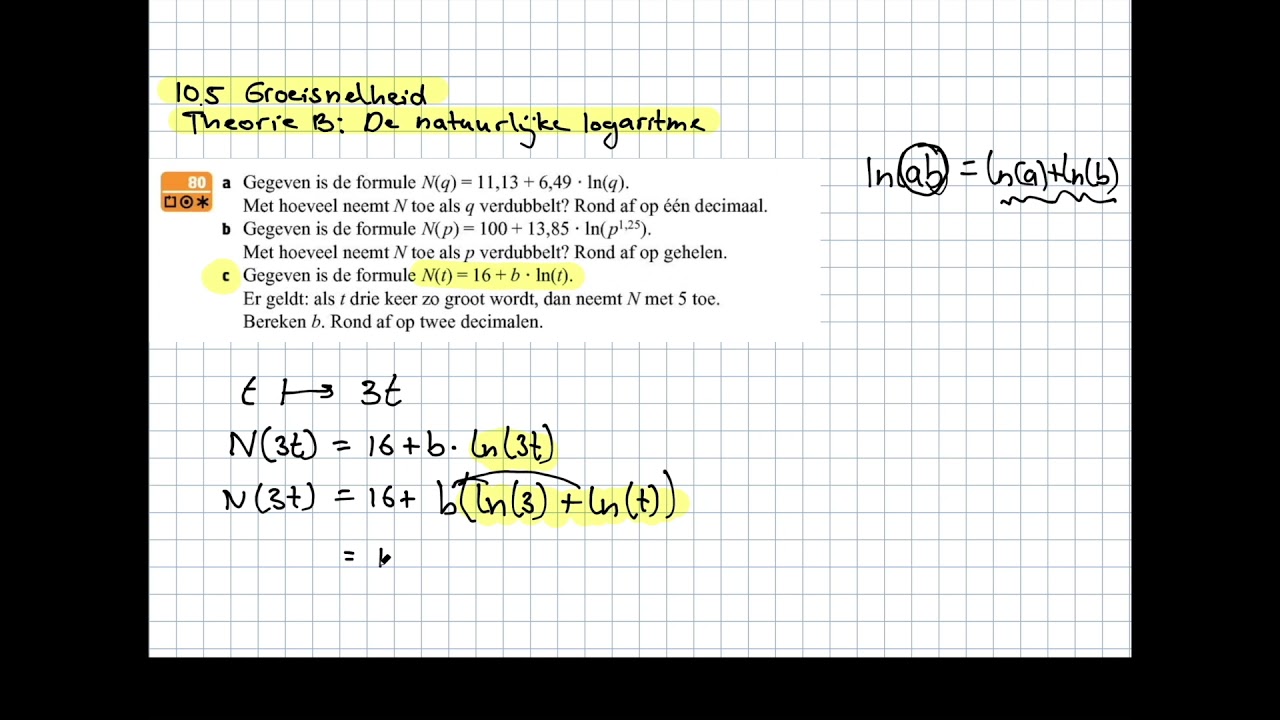 10.5 Groeisnelheid
Theorie B: De natuurlijke logaritme
ln(ab) = ln(a)+ln(b)
80
a Gegeven is de formule N(q) = 11,13 + 6,49 · ln(q).
Met hoeveel neemt N toe als q verdubbelt? Rond af op één decimaal.
b Gegeven is de formule N(p) = 100 + 13,85 · ln(p^1,25).
Met hoeveel neemt N toe als p verdubbelt? Rond af op gehelen.
c Gegeven is de formule N(t) = 16 + b · ln(t).
Er geldt: als t drie keer zo groot wordt, dan neemt N met 5 toe.
Bereken b. Rond af op twee decimalen.
t ↦ 3t
N(3t) = 16 + b · ln(3t)
N(3t) = 16+ b(ln(3) + ln(t))
=